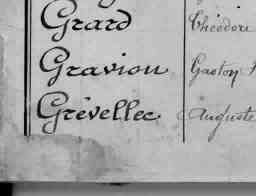 Grard Théodore
Gravion Gaston
Grévellec Auguste